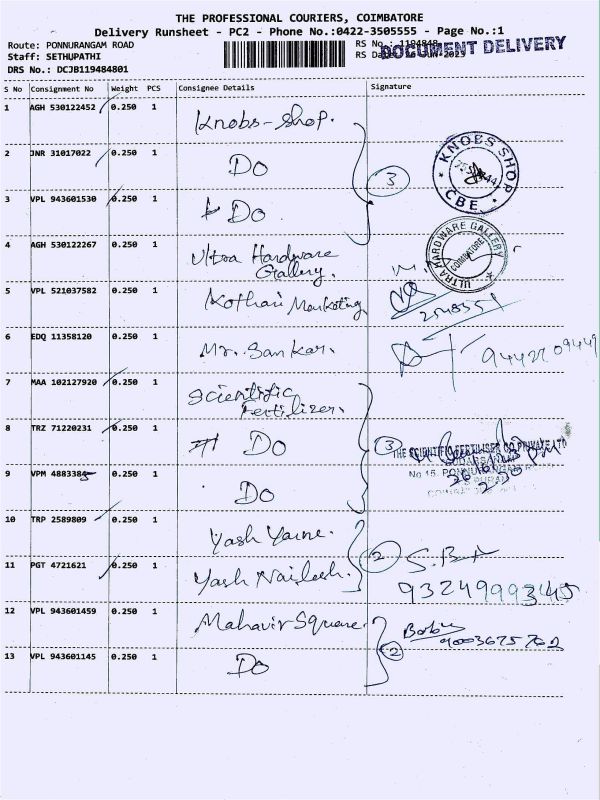 THE PROFESSIONAL COURIERS, COIMBATORE
Delivery Runsheet - PC2 - Phone No.:0422-3505555 - Page No.:1
Route: PONNURANGAM ROAD
Staff: SETHUPATHI
DRS No.: DCJB119484801
RS No.: 1194848
DOCUMENT DELIVERY
S No Consignment No Weight PCS Consignee Details Signature
1 AGH 530122452 0.250 1 Knobs-Shop.
2 JNR 31017022 0.250 1 Do
3 VPL 943601530 0.250 1 Do
3
KNOBS SHOP
CBE
4 AGH 530122267 0.250 1 Ultra Hardware
Gallery.
ULTRA HARDWARE GALLERY
COIMBATORE
5 VPL 521037582 0.250 1 Kothari Marketing
6 EDQ 11358120 0.250 1 Mr. Sankar.
7 MAA 102127920 0.250 1 Scientific
Fertilizer.
8 TRZ 71220231 0.250 1 Do
3
THE SCIENTIFIC FERTILISER CO PRIVATE LTD
9 VPM 4883384 0.250 1 Do
10 TRP 2589809 0.250 1 Yash Yarne.
2
11 PGT 4721621 0.250 1 Yash Nailesh.
12 VPL 943601459 0.250 1 Mahavir Square.
Babu
9003675702
2
13 VPL 943601145 0.250 1 Do